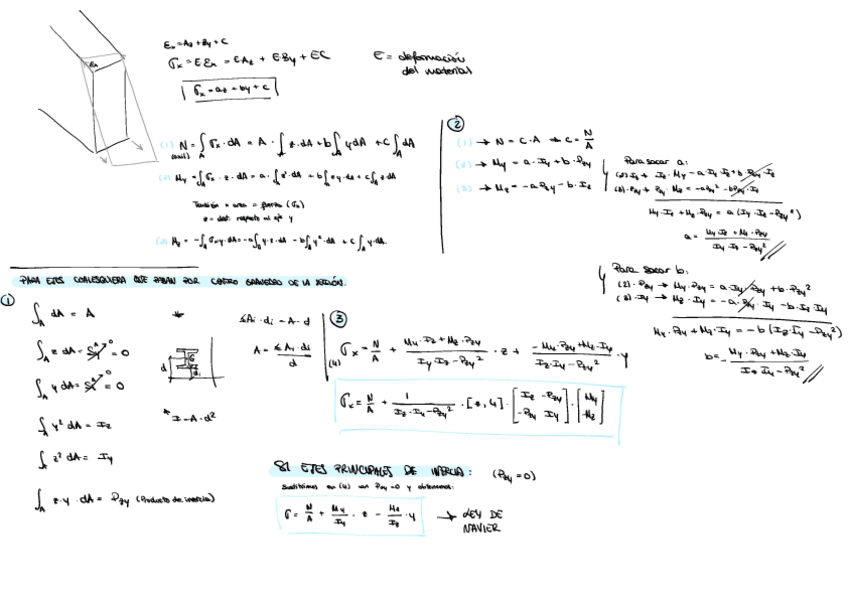 εₓ = Az + By + C
σₓ = E εₓ = E·Az + E·By + EC
E = deformación del material
σₓ = az + by + c
(1) N = ∫_A σₓ · dA = A · ∫_A z·dA + b∫_A y dA + c∫_A dA
(axil)
(2) My = ∫_A σₓ · z · dA = a · ∫_A z² · dA + b∫_A z y · dA + c∫_A z dA
Tensión × area = fuerza (σₓ)
z = dist. respecto al eje y
(3) Mz = -∫_A σₓ · y · dA = -a∫_A y · z · dA - b∫_A y² · dA + c∫_A y · dA.
②
(1) → N = C · A ⇒ C = N/A
(2) → My = a · Iy + b · Pzy
(3) → Mz = -a Pzy - b · Iz
Para sacar a:
My · Iz + Mz · Pzy = a (Iy · Iz - Pzy²)
a = (My Iz + Mz · Pzy) / (Iy · Iz - Pzy²)
Para sacar b:
(2) · Pzy → My · Pzy = a · Iy · Pzy + b · Pzy²
(3) · Iy → Mz · Iy = -a · Pzy · Iy - b · Iz · Iy
My · Pzy + Mz · Iy = -b (Iz · Iy - Pzy²)
b = - (My · Pzy + Mz · Iy) / (Iz · Iy - Pzy²)
PARA EJES CUALESQUIERA QUE PASAN POR CENTRO GRAVEDAD DE LA SECCIÓN.
①
∫_A dA = A
∫_A z dA = 0
∫_A y dA = 0
∫_A y² dA = Iz
∫_A z² dA = Iy
∫_A z · y · dA = Pzy (Producto de inercia)
*
d
G
d
* I - A · d²
≤Ai · di = A · d
A = ≤ Ai · di / d
③
(4) σₓ = N/A + (My · Iz + Mz · Pzy) / (Iy · Iz - Pzy²) · z + (-My · Pzy + Mz · Iy) / (Iz · Iy - Pzy²) · y
σₓ = N/A + 1 / (Iz · Iy - Pzy²) · [z, y] · [Iz -Pzy; -Pzy Iy] · [My; -Mz]
SI EJES PRINCIPALES DE INERCIA: (Pzy = 0)
Sustituimos en (4) con Pzy = 0 y obtenemos:
σ = N/A + My/Iy · z - Mz/Iz · y → LEY DE NAVIER